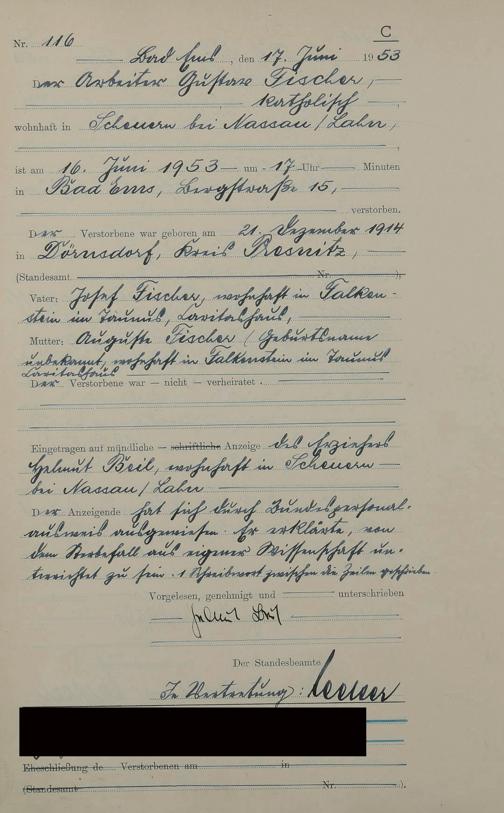 C
Nr. 116
Bad Ems, den 17. Juni 1953
Der Arbeiter Gustav Fischer,
katholisch,
wohnhaft in Scheuern bei Nassau/Lahn,
ist am 16. Juni 1953 um 17 Uhr Minuten
in Bad Ems, Bergstraße 15,
verstorben.
Der Verstorbene war geboren am 21. Dezember 1914
in Dörnsdorf, Kreis Presnitz,
(Standesamt Nr. ).
Vater: Josef Fischer, wohnhaft in Falken-
stein im Taunus, Caritashaus,
Mutter: Auguste Fischer (Geburtsname
unbekannt, wohnhaft in Falkenstein im Taunus
Caritashaus
Der Verstorbene war — nicht — verheiratet.
Eingetragen auf mündliche — schriftliche Anzeige des Erziehers
Helmut Beil, wohnhaft in Scheuern
bei Nassau/Lahn
Der Anzeigende hat sich durch Bundespersonal-
ausweis ausgewiesen. Er erklärte, von
dem Sterbefall aus eigener Wissenschaft un-
terrichtet zu sein. 1 Schreibwort zwischen die Zeilen geschrieben
Vorgelesen, genehmigt und unterschrieben
Helmut Beil
Der Standesbeamte
In Vertretung:
Eheschließung de Verstorbenen am in
(Standesamt Nr. ).